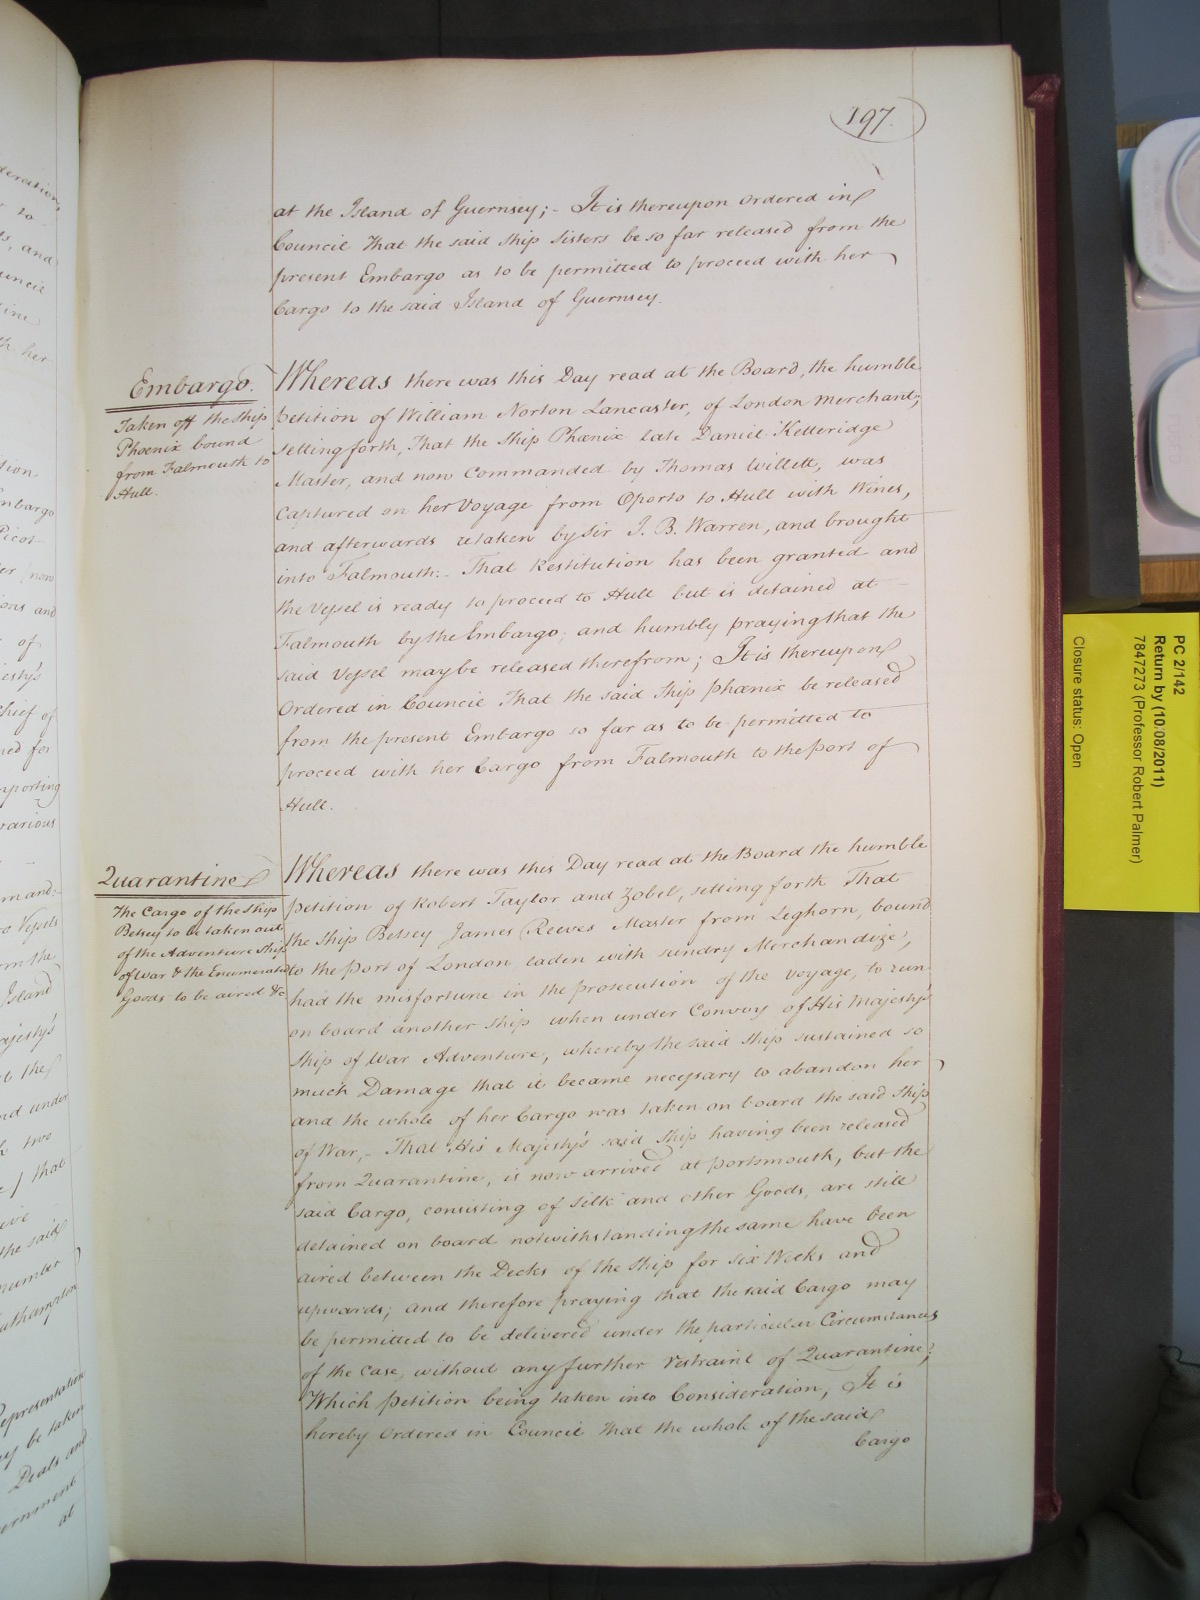 197.
at the Island of Guernsey; - It is thereupon Ordered in
Council That the said Ship Sisters be so far released from the
present Embargo as to be permitted to proceed with her
Cargo to the said Island of Guernsey.
Embargo.
Taken off the Ship
Phoenix bound
from Falmouth to
Hull.
Whereas there was this Day read at the Board, the humble
Petition of William Norton Lancaster, of London Merchant;
setting forth, That the Ship Phœnix late Daniel Kelleridge
Master, and now Commanded by Thomas Willett, was
Captured on her Voyage from Oporto to Hull with Wines,
and afterwards retaken by Sir J. B. Warren, and brought
into Falmouth:- That Restitution has been granted and
the Vessel is ready to proceed to Hull but is detained at
Falmouth by the Embargo; and humbly praying that the
said Vessel may be released therefrom; It is thereupon
Ordered in Council That the said Ship Phœnix be released
from the present Embargo so far as to be permitted to
proceed with her Cargo from Falmouth to the Port of
Hull.
Quarantine
The Cargo of the Ship
Betsey to be taken out
of the Adventure Ship
of War & the Enumerated
Goods to be aired &c
Whereas there was this Day read at the Board the humble
Petition of Robert Taylor and Zobel, setting forth That
the Ship Betsey James Reeves Master from Leghorn, bound
to the Port of London laden with sundry Merchandize,
had the misfortune in the prosecution of the Voyage, to run
on board another Ship when under Convoy of His Majesty's
Ship of War Adventure, whereby the said Ship sustained so
much Damage that it became necessary to abandon her
and the whole of her Cargo was taken on board the said Ship
of War,- That His Majesty's said Ship having been released
from Quarantine, is now arrived at Portsmouth, but the
said Cargo, consisting of Silk and other Goods, are still
detained on board notwithstanding the same have been
aired between the Decks of the Ship for Six Weeks and
upwards; and therefore praying that the said Cargo may
be permitted to be delivered under the particular Circumstances
of the Case, without any further restraint of Quarantine;
Which Petition being taken into Consideration, It is
hereby Ordered in Council That the whole of the said
Cargo
PC 2/142
Return by (10/08/2011)
7847273 (Professor Robert Palmer)
Closure status: Open